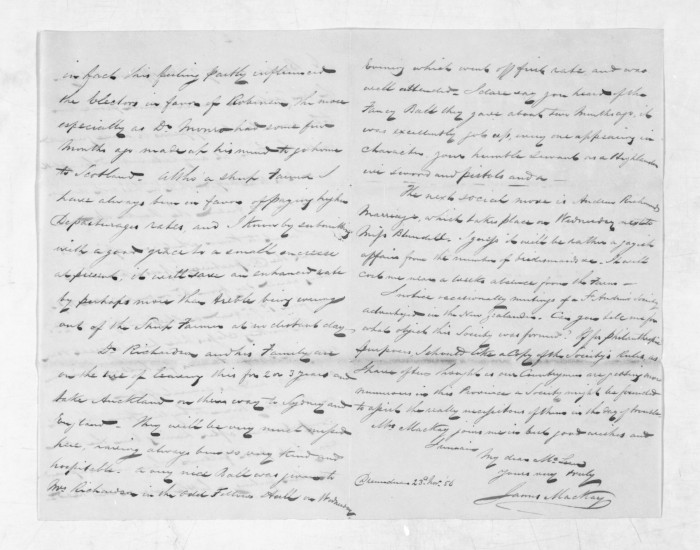 in fact this feeling partly influenced
the Electors in favor of Robinson the more
especially as Dr Monro had some few
Months ago made up his mind to go home
to Scotland. Altho a sheep farmer I
have always been in favor of paying high
Depasturages rates, and I know by submitting
with a good grace to a small increase
at present, it will save an enhanced rate
by perhaps more than treble being wrung
out of the Sheep Farmer at no distant day
Dr Richardson and his Family are
on the eve of leaving this for 2 or 3 years and
take Auckland on their way to Sydney and
England - They will be very much missed
here, having always been so very kind and
hospitable. A very nice Ball was given to
Mrs Richardson in the Odd Fellows Hall on Wednesday
Evening which went off first rate and was
well attended - I dare say you heard of the
Fancy Ball they gave about two Months ago, it
was excellently got up, every one appearing in
Character, your humble servant as a Highlander
with sword and pistols and a -
The next social move is Andrew Richmond
Marriage, which takes place on Wednesday next to
Miss Blundell. I guess it will be rather a joyish
affair from the number of bridesmaids &c. It will
cost me near a weeks absence from the Farm -
I notice occasionally meetings of a St Andrews Society
advertized in the New Zealander. Can you tell me for
what object this Society was formed? If for philanthropic
purposes I should like a Copy of the Society's Rules, as
I have often thought as our Countrymen are getting more
numerous in this Province a Society might be founded
to assist the really necessitous of them in the day of trouble
Mrs Mackay joins me in best good wishes and
I remain
My dear McLean
Yours very truly
James Mackay
28 Nov. 56